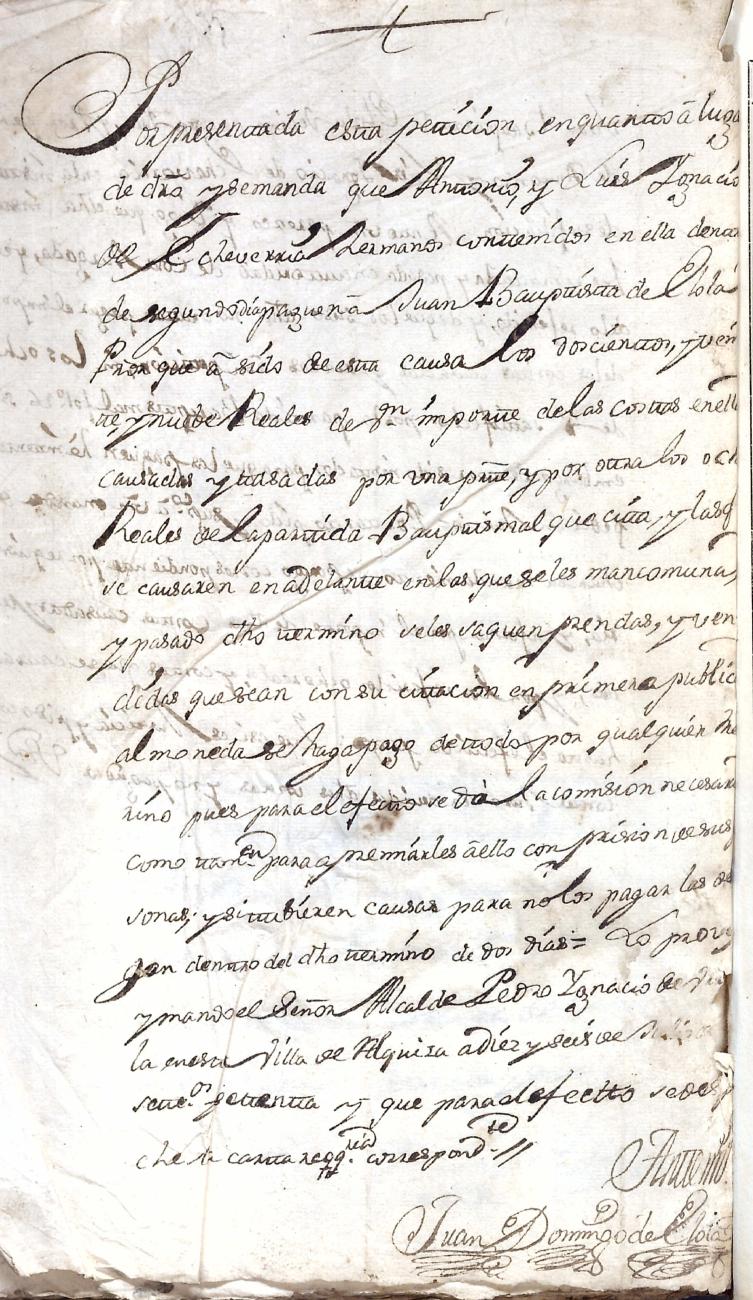 Por presentada esta peticion en quanto â luga
de dro y se manda que Antonio, y Luis Ygnacio
de Echeverria hermanos contenidos en ella dentro
de segundo dia paguen â Juan Baptista de Elola
Prior que â sido de esta causa los doscientos, y vein
te y nuebe Reales de vn importe de las costas en ella
causadas y tasadas por vna pte, y por otra los och
Reales de la partida Baptismal que cita, y las q
se causaren en adelante en las que se les mancomuna,
y pasado dho termino se les saquen prendas, y ven
didas que sean con su citacion en primera public
almoneda se haga pago de todo por qualquier me
rino pues para el efecto se dà la comision necesaria
como tamen para apremiarles â ello con prision de sus
sonas; y si tubieren causas para no los pagar las de
gan dentro del dho termino de dos dias = Lo proveyo
y mando el Señor Alcalde Pedro Ygnacio de
la en esta Villa de Alquiza a diez y seis de
setteos settenta y que para el efectto se des
che la carta reqq.ria correspond.te //
Antemi
Juan Domingo de Elola